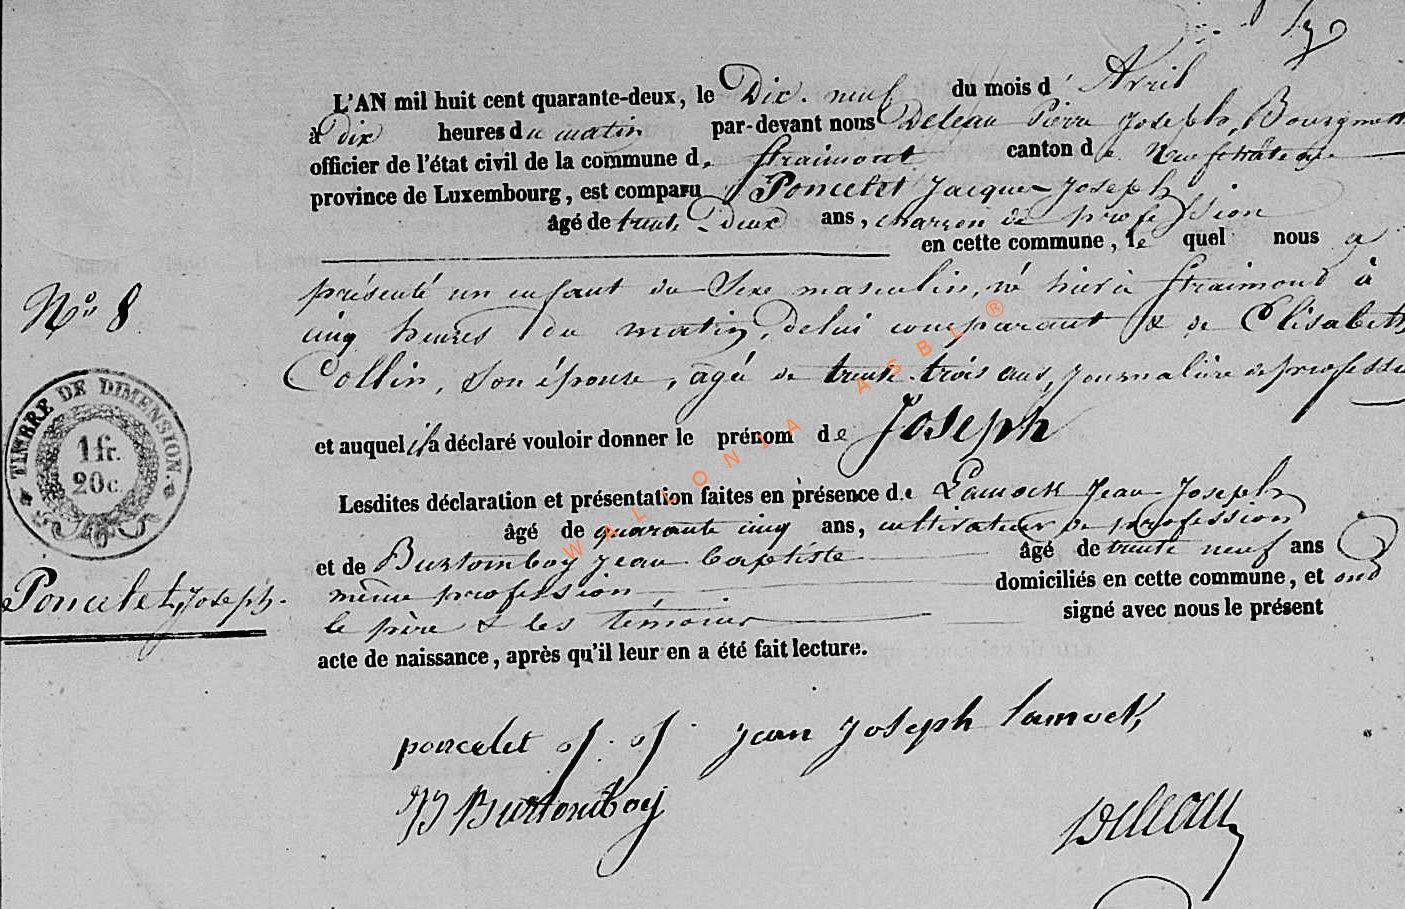 L'AN mil huit cent quarante-deux, le Dix-neuf du mois d' Avril
à Dix heures du matin par-devant nous Deleau Pierre Joseph, Bourgmest
officier de l'état civil de la commune de Straimont canton de Neufchâteau
province de Luxembourg, est comparu Poncelet Jacque-Joseph
âgé de trente-Deux ans, charron de profession
en cette commune, lequel nous a
N° 8
présenté un enfant du Sexe masculin, né hier à Straimond à
cinq heures du matin, de lui comparant & de Elisabeth
Collin, Son épouse, agée de trente-trois ans, journalière de professi
TIMBRE DE DIMENSION.
1 fr.
20 c.
et auquel il a déclaré vouloir donner le prénom de Joseph
Lesdites déclaration et présentation faites en présence de Lamock Jean-Joseph
âgé de quarante cinq ans, cultivateur de profession
et de Burtomboy Jean baptiste âgé de trente neuf ans
Poncelet, Joseph.
même profession, domiciliés en cette commune, et ond
le père & les témoins signé avec nous le présent
acte de naissance, après qu'il leur en a été fait lecture.
poncelet j. j. jean joseph lamock,
JB Burtomboy
Deleau
WALLONIA ASBL ®